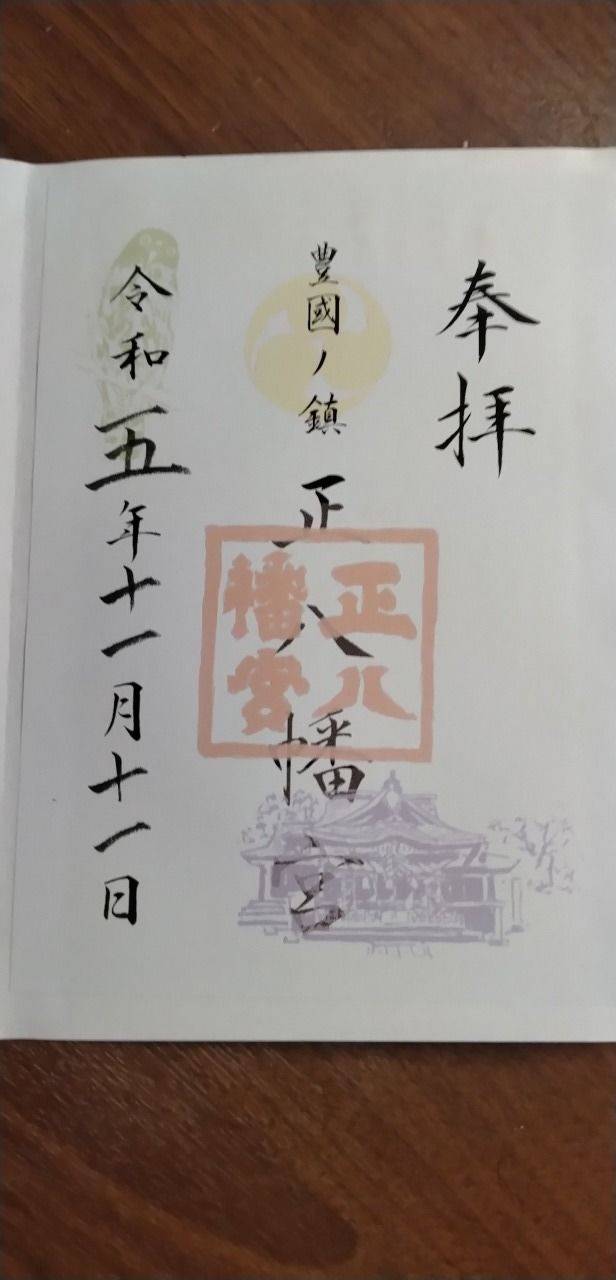 奉拝
豊國ノ鎮 正八幡宮
正八
幡宮
令和五年十一月十一日